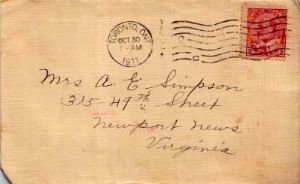 TORONTO, ONT
OCT 30
1-AM
1911
Mrs A E Simpson
315-49th Street
Newport News
Virginia